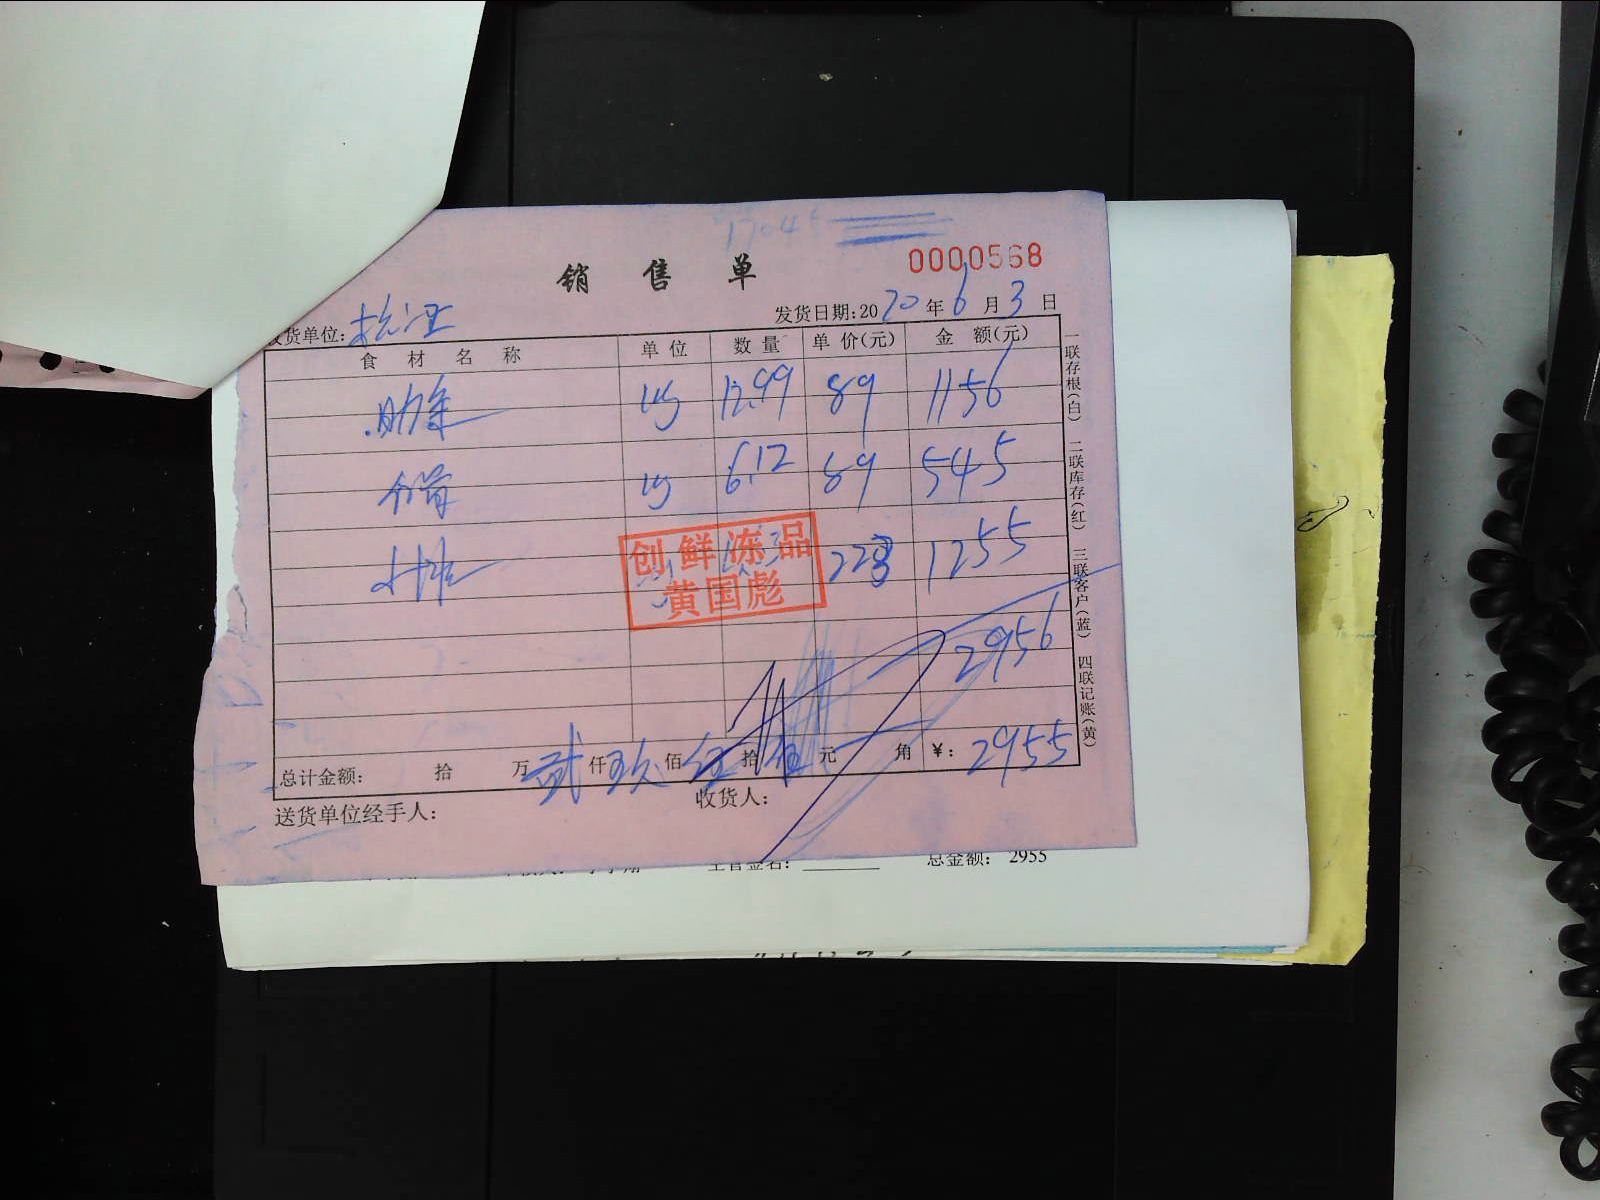 17045
销售单
0000568
货单位：
发货日期：2020年6月3日
食材名称 单位 数量 单价(元) 金额(元)
kg 12.99 89 1156
kg 6.12 89 545
228 1255
创鲜冻品
黄国彪
2956
总计金额： 拾 万 贰 仟 玖 佰 伍 拾 伍 元 角 ￥：2955
送货单位经手人：
收货人：
一联存根(白) 二联库存(红) 三联客户(蓝) 四联记账(黄)
总金额： 2955